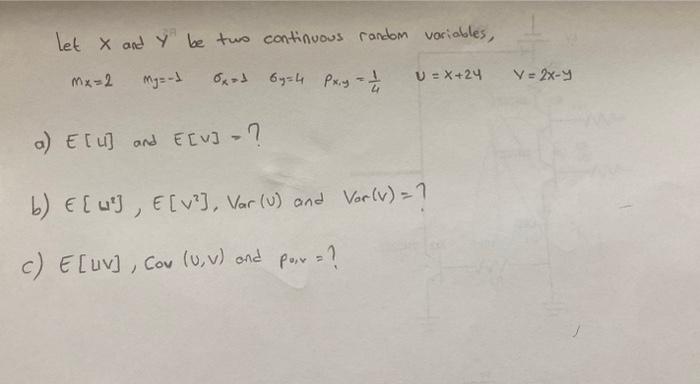 Let X and Y be two continuous random variables,
mx=2 my=-1 σx=1 σy=4 ρx,y = 1/4 U = X+2Y V = 2X-Y
a) E[U] and E[V] = ?
b) E[U²], E[V²], Var(U) and Var(V) = ?
c) E[UV], Cov (U,V) and ρu,v = ?